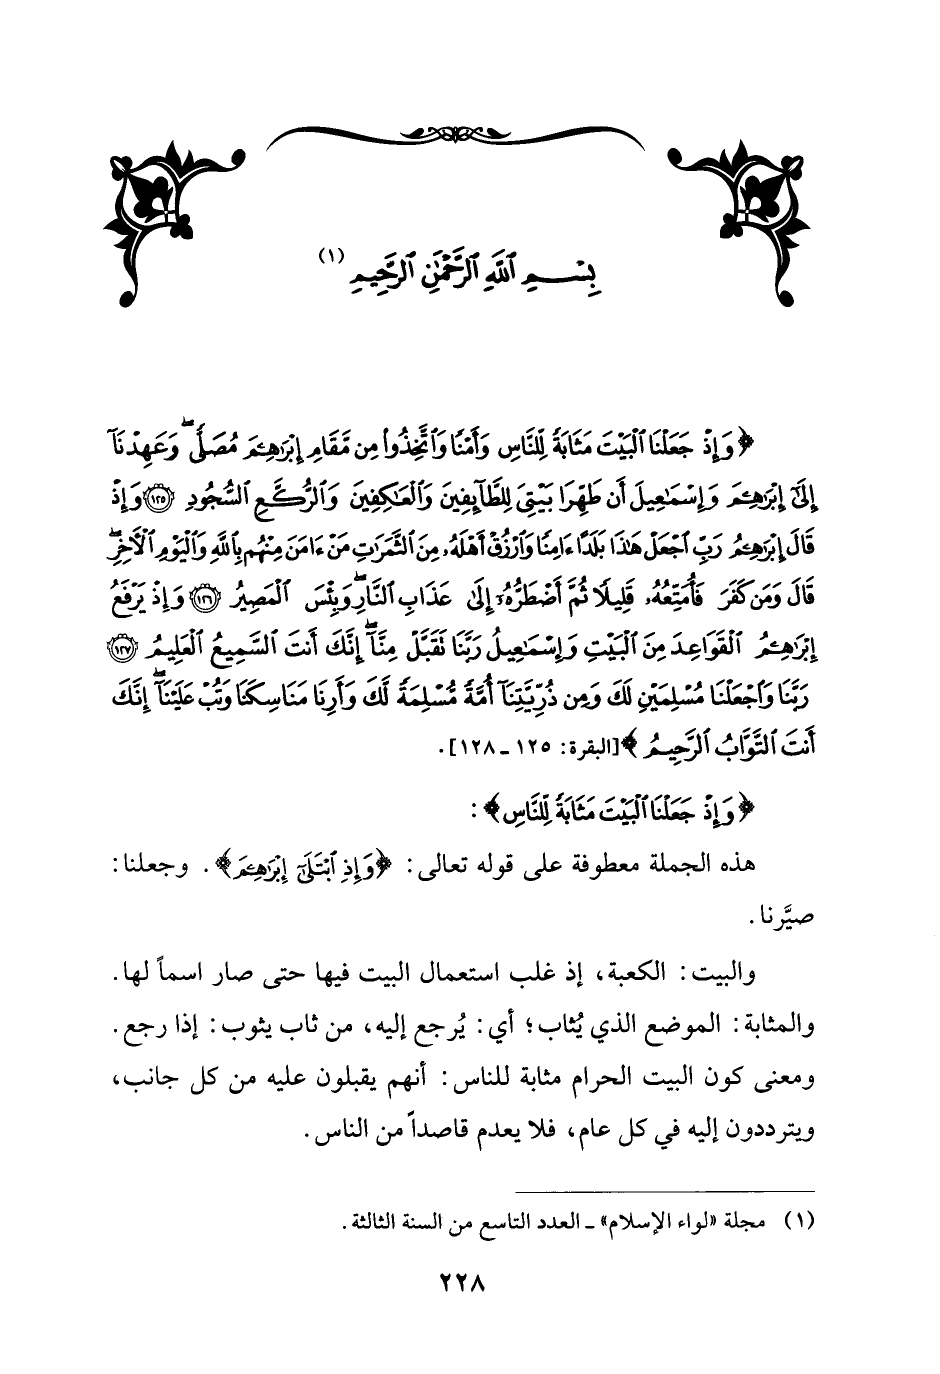 بِسْمِ ٱللَّهِ ٱلرَّحْمَٰنِ ٱلرَّحِيمِ (١)
﴿وَإِذْ جَعَلْنَا ٱلْبَيْتَ مَثَابَةً لِّلنَّاسِ وَأَمْنًا وَٱتَّخِذُوا۟ مِن مَّقَامِ إِبْرَٰهِـۧمَ مُصَلًّى ۖ وَعَهِدْنَآ
إِلَىٰٓ إِبْرَٰهِـۧمَ وَإِسْمَٰعِيلَ أَن طَهِّرَا بَيْتِىَ لِلطَّآئِفِينَ وَٱلْعَٰكِفِينَ وَٱلرُّكَّعِ ٱلسُّجُودِ ١٢٥ وَإِذْ
قَالَ إِبْرَٰهِـۧمُ رَبِّ ٱجْعَلْ هَٰذَا بَلَدًا ءَامِنًا وَٱرْزُقْ أَهْلَهُۥ مِنَ ٱلثَّمَرَٰتِ مَنْ ءَامَنَ مِنْهُم بِٱللَّهِ وَٱلْيَوْمِ ٱلْءَاخِرِ ۖ
قَالَ وَمَن كَفَرَ فَأُمَتِّعُهُۥ قَلِيلًا ثُمَّ أَضْطَرُّهُۥٓ إِلَىٰ عَذَابِ ٱلنَّارِ ۖ وَبِئْسَ ٱلْمَصِيرُ ١٢٦ وَإِذْ يَرْفَعُ
إِبْرَٰهِـۧمُ ٱلْقَوَاعِدَ مِنَ ٱلْبَيْتِ وَإِسْمَٰعِيلُ رَبَّنَا تَقَبَّلْ مِنَّآ ۖ إِنَّكَ أَنتَ ٱلسَّمِيعُ ٱلْعَلِيمُ ١٢٧
رَبَّنَا وَٱجْعَلْنَا مُسْلِمَيْنِ لَكَ وَمِن ذُرِّيَّتِنَآ أُمَّةً مُّسْلِمَةً لَّكَ وَأَرِنَا مَنَاسِكَنَا وَتُبْ عَلَيْنَآ ۖ إِنَّكَ
أَنتَ ٱلتَّوَّابُ ٱلرَّحِيمُ﴾ [البقرة: ١٢٥ ـ ١٢٨].
﴿وَإِذْ جَعَلْنَا ٱلْبَيْتَ مَثَابَةً لِّلنَّاسِ﴾:
هذه الجملة معطوفة على قوله تعالى: ﴿وَإِذِ ٱبْتَلَىٰٓ إِبْرَٰهِـۧمَ﴾. وجعلنا:
صيَّرنا.
والبيت: الكعبة، إذ غلب استعمال البيت فيها حتى صار اسماً لها.
والمثابة: الموضع الذي يُثاب؛ أي: يُرجع إليه، من ثاب يثوب: إذا رجع.
ومعنى كون البيت الحرام مثابة للناس: أنهم يقبلون عليه من كل جانب،
ويترددون إليه في كل عام، فلا يعدم قاصداً من الناس.
(١) مجلة «لواء الإسلام» ـ العدد التاسع من السنة الثالثة.
٢٢٨